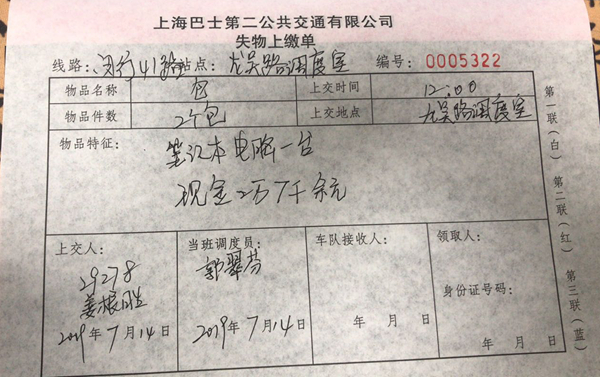 上海巴士第二公共交通有限公司
失物上缴单
线路: 闵行41路 站点: 龙吴路调度室 编号: 0005322
物品名称 包 上交时间 12:00
物品件数 2个包 上交地点 龙吴路调度室
物品特征: 笔记本电脑一台
现金2万7千余元
上交人: 当班调度员: 车队接收人: 领取人:
29278 郭翠芬
姜根胜 身份证号码:
2019年7月14日 2019年7月14日 年 月 日 年 月 日
第一联(白) 第二联(红) 第三联(蓝)